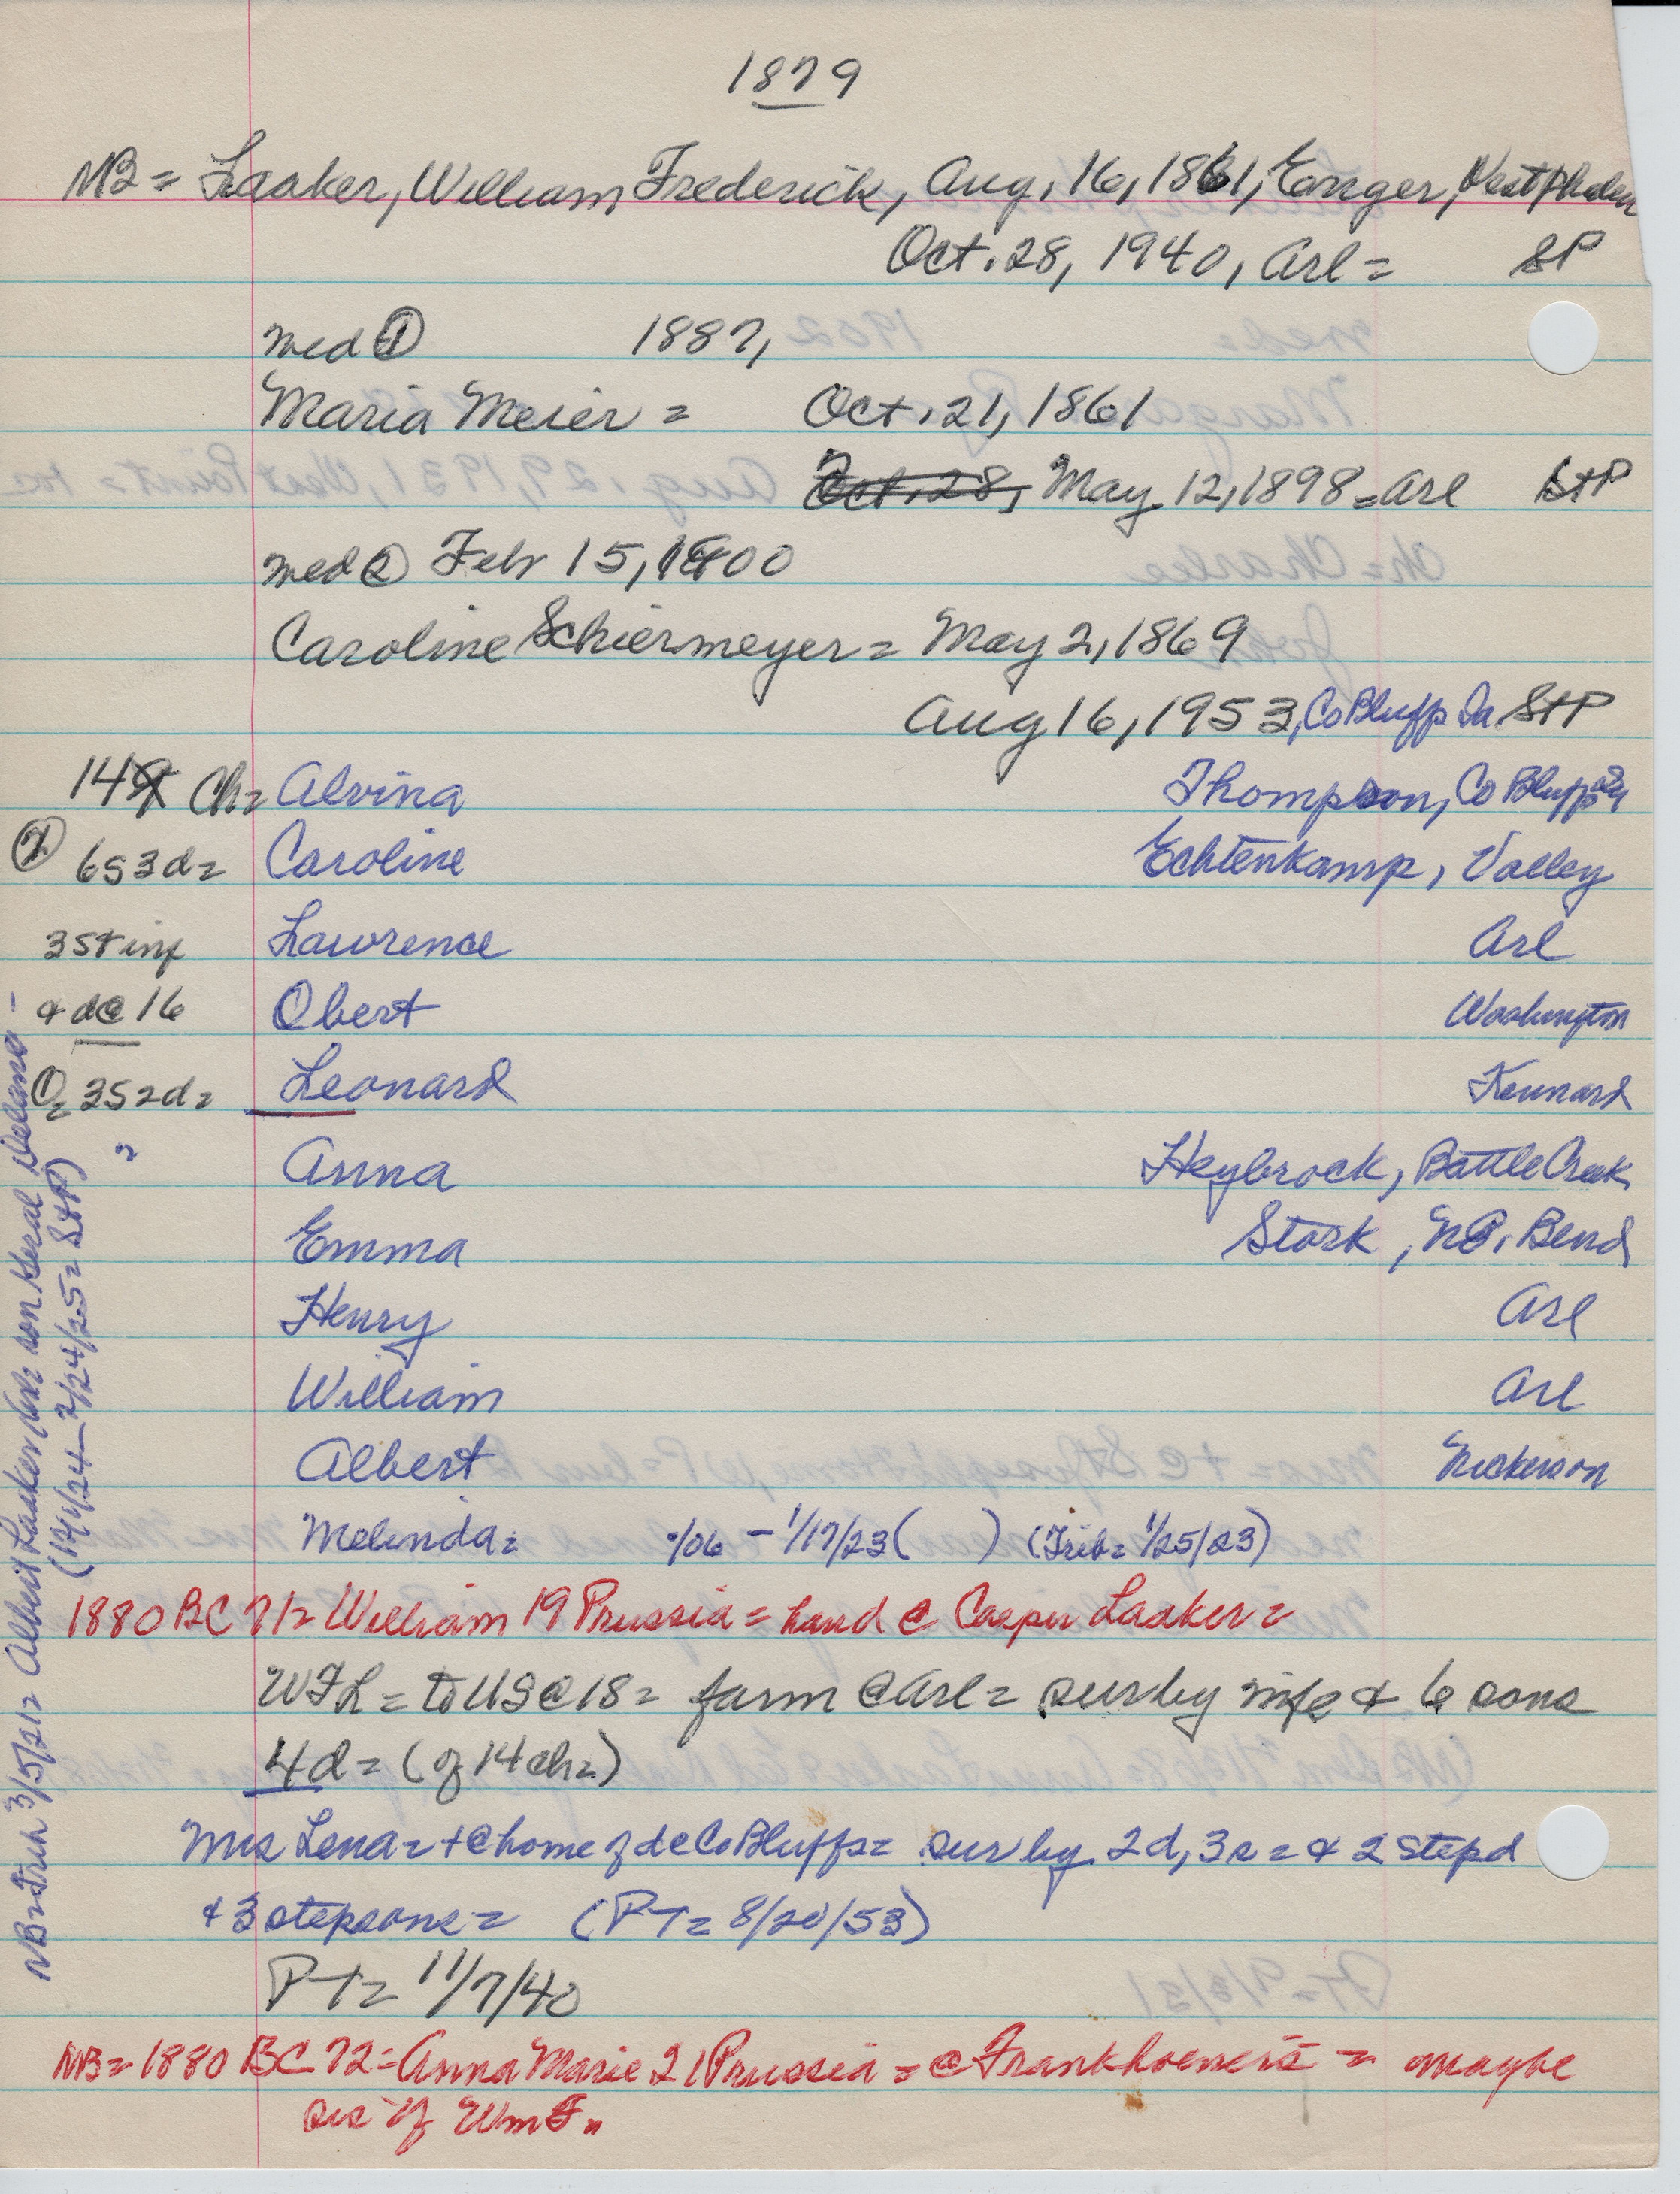 1879
NB = Laaker, William Frederick, Aug. 16, 1861, Enger, Westphalen
Oct. 28, 1940, Arl = SP
med ① 1887,
Maria Meier = Oct. 21, 1861
Oct. 28, May 12, 1898 = Arl StP
med ② Feb 15, 1900
Caroline Schiermeyer = May 2, 1869
Aug 16, 1953, Co Bluffs Ia StP
14 Ch = Alvina Thompson, Co Bluffs Ia
② 6s 3d = Caroline Echtenkamp, Valley
3s + inf Lawrence Arl
+ d@ 16 Obert Washington
① = 3s 2d = Leonard Kennard
Anna Heybrock, Battle Creek
Emma Stork, No. Bend
Henry Arl
William Arl
Albert Nickerson
Melinda = /06 - 1/17/23 ( ) (Trib = 1/25/23)
1880 BC 71 = William 19 Prussia = hand @ Casper Laaker =
WFL = to US @ 18 = farm @ Arl = sur by wife & 6 sons
4d = (of 14 ch =)
Mrs Lena = + @ home of d @ Co Bluffs = sur by 2d, 3s = & 2 stepd
+ 3 stepsons = (PT = 8/20/53)
PT = 11/7/40
NB = 1880 BC 72 = Anna Marie 21 Prussia = @ Frankhoeners = maybe
sis of Wm F =
NB = Trib 3/5/21 = Albert Laaker son Veral Delano -
2/24/25 = StP)